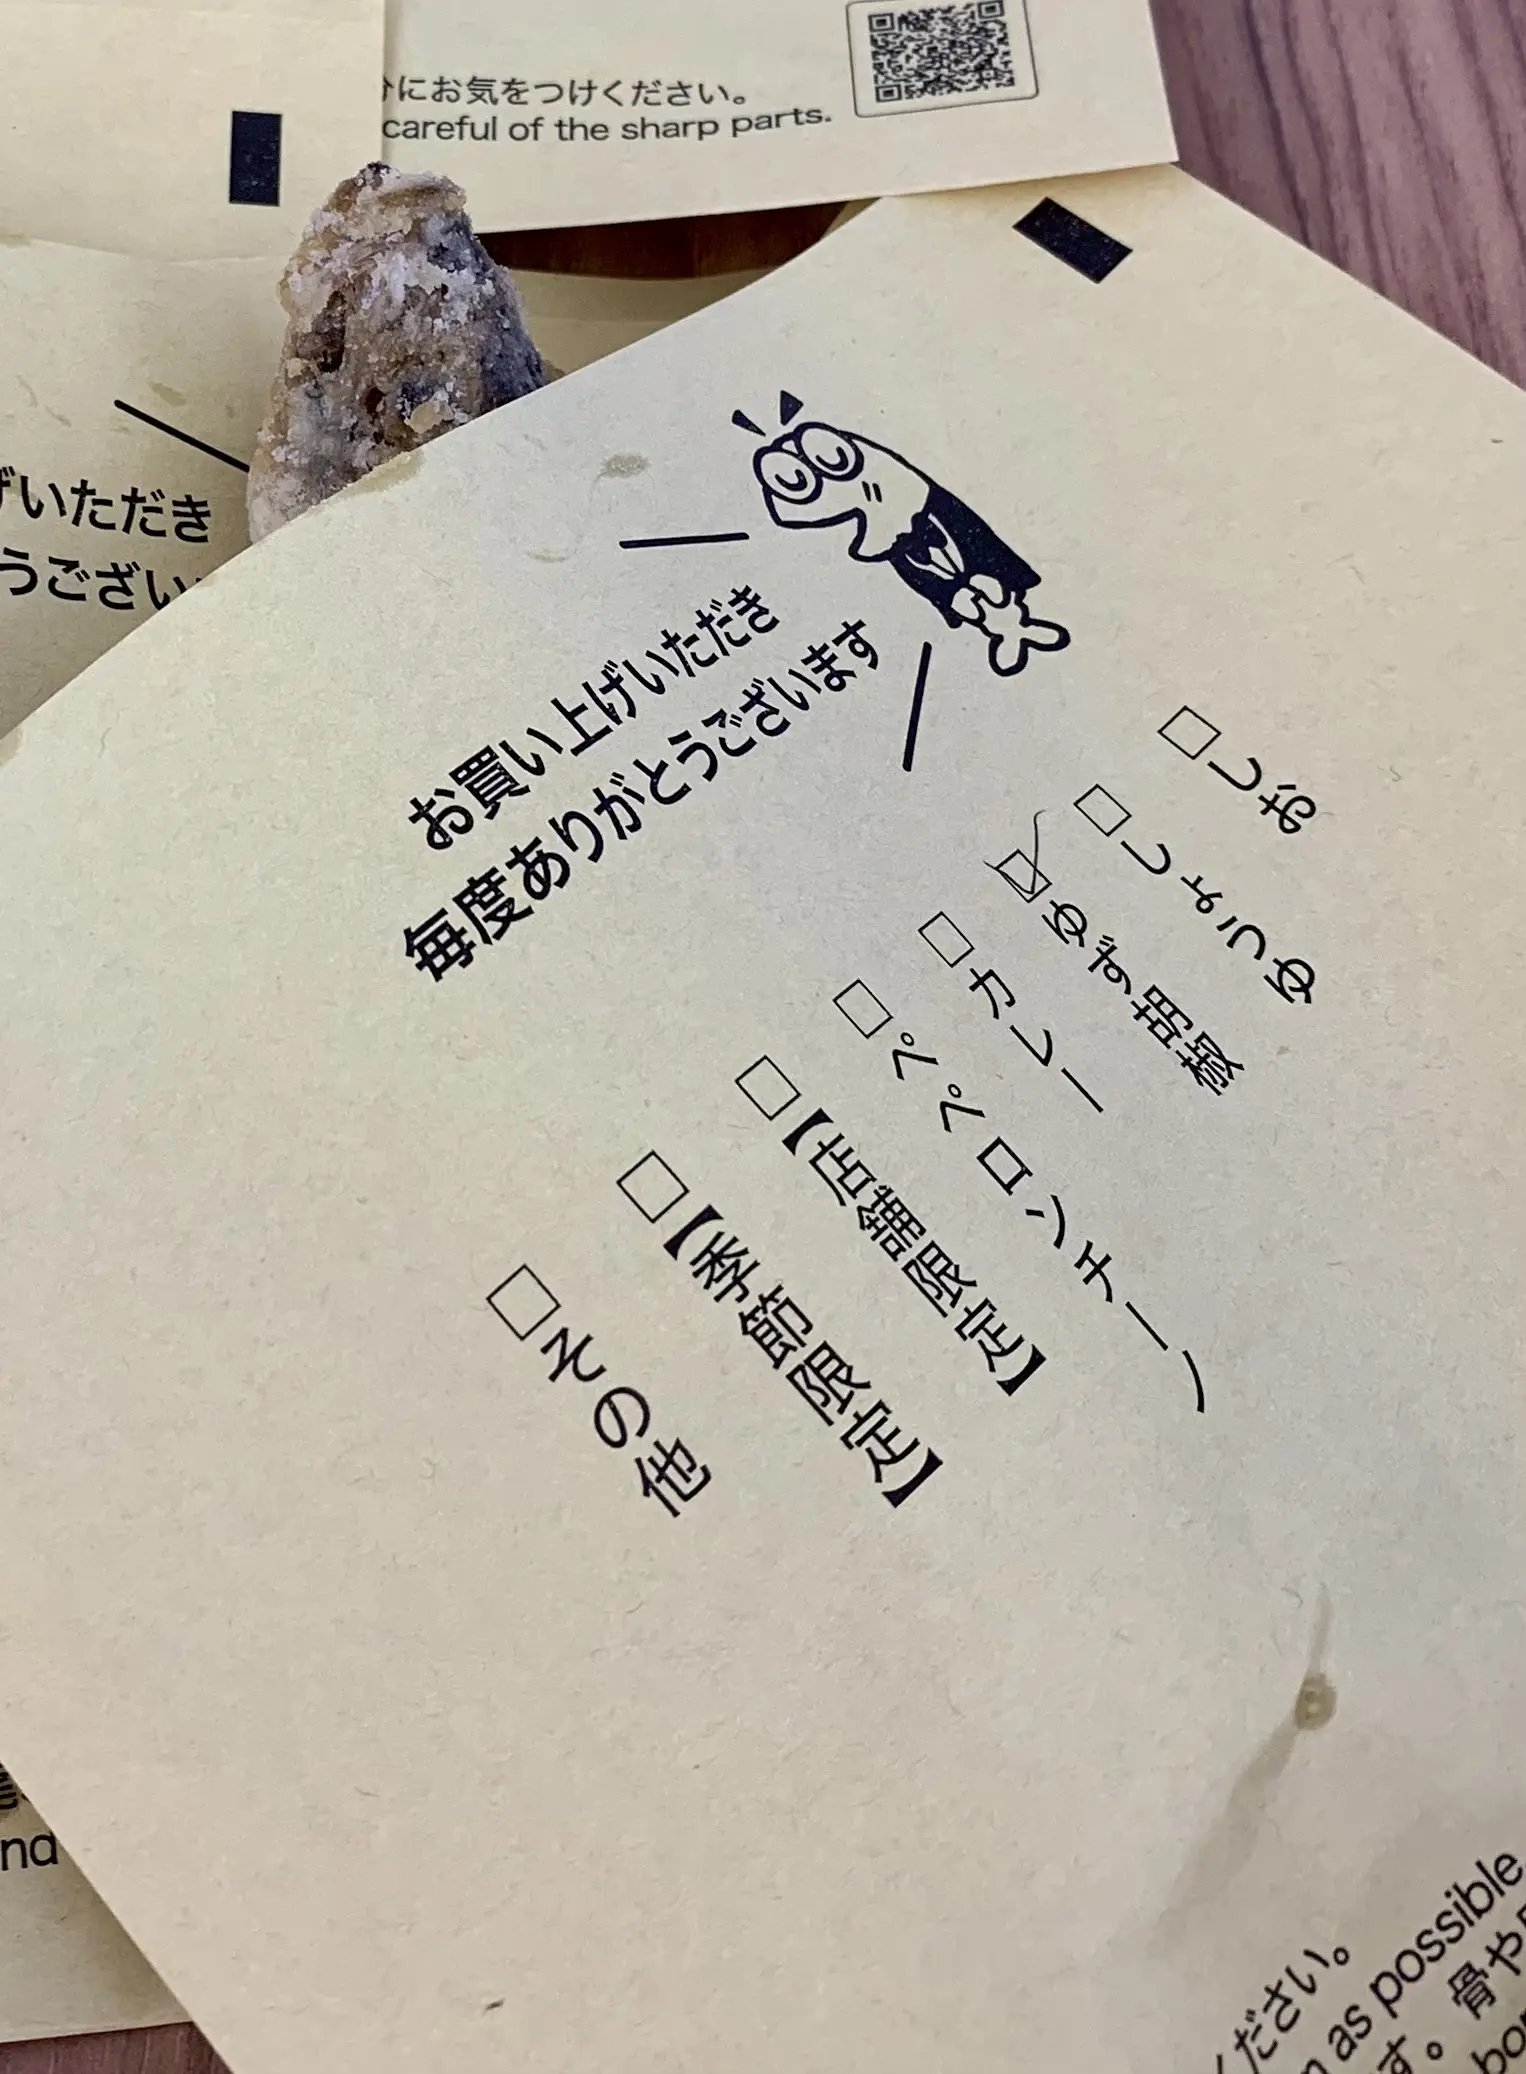 にお気をつけください。
careful of the sharp parts.
いただき
うござい
お買い上げいただき
毎度ありがとうございます
□しお
□しょうゆ
☑ゆず胡椒
□カレー
□ペペロンチーノ
□【店舗限定】
□【季節限定】
□その他
nd
ください。
as possible
す。骨や